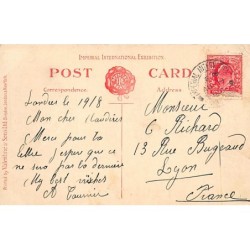 IMPERIAL INTERNATIONAL EXHIBITION
POST CARD
Correspondence.
Address.
Londres le 19/8
Mon cher Claudius
Merci pour ta
lettre j'espere que ce
ne sera pas ta derniere
My best wishes
A Tournier
Monsieur
C Richard
13 Rue Bugeaud
Lyon
France